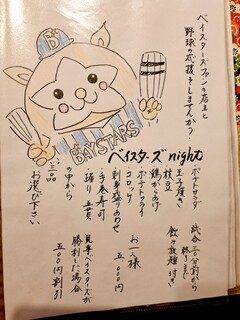 ベイスターズファンの店主と
野球の応援をしませんか?
B
BAYSTARS
ベイスターズnight
試合三〇分前から
終了まで
飲み放題付き
お一人様
五、〇〇〇円
見事ベイスターズが
勝利した場合
五〇〇円割引
ポテトサラダ
玉子焼き
枝豆
鶏からあげ
ポテトフライ
コロッケ
刺身盛り合わせ
・手巻寿司
・握り 五貫
の中から
三品
お選び下さい。